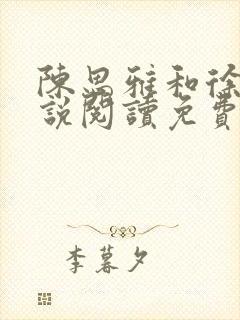 陳思雅和徐
說閱讀免費
李暮夕